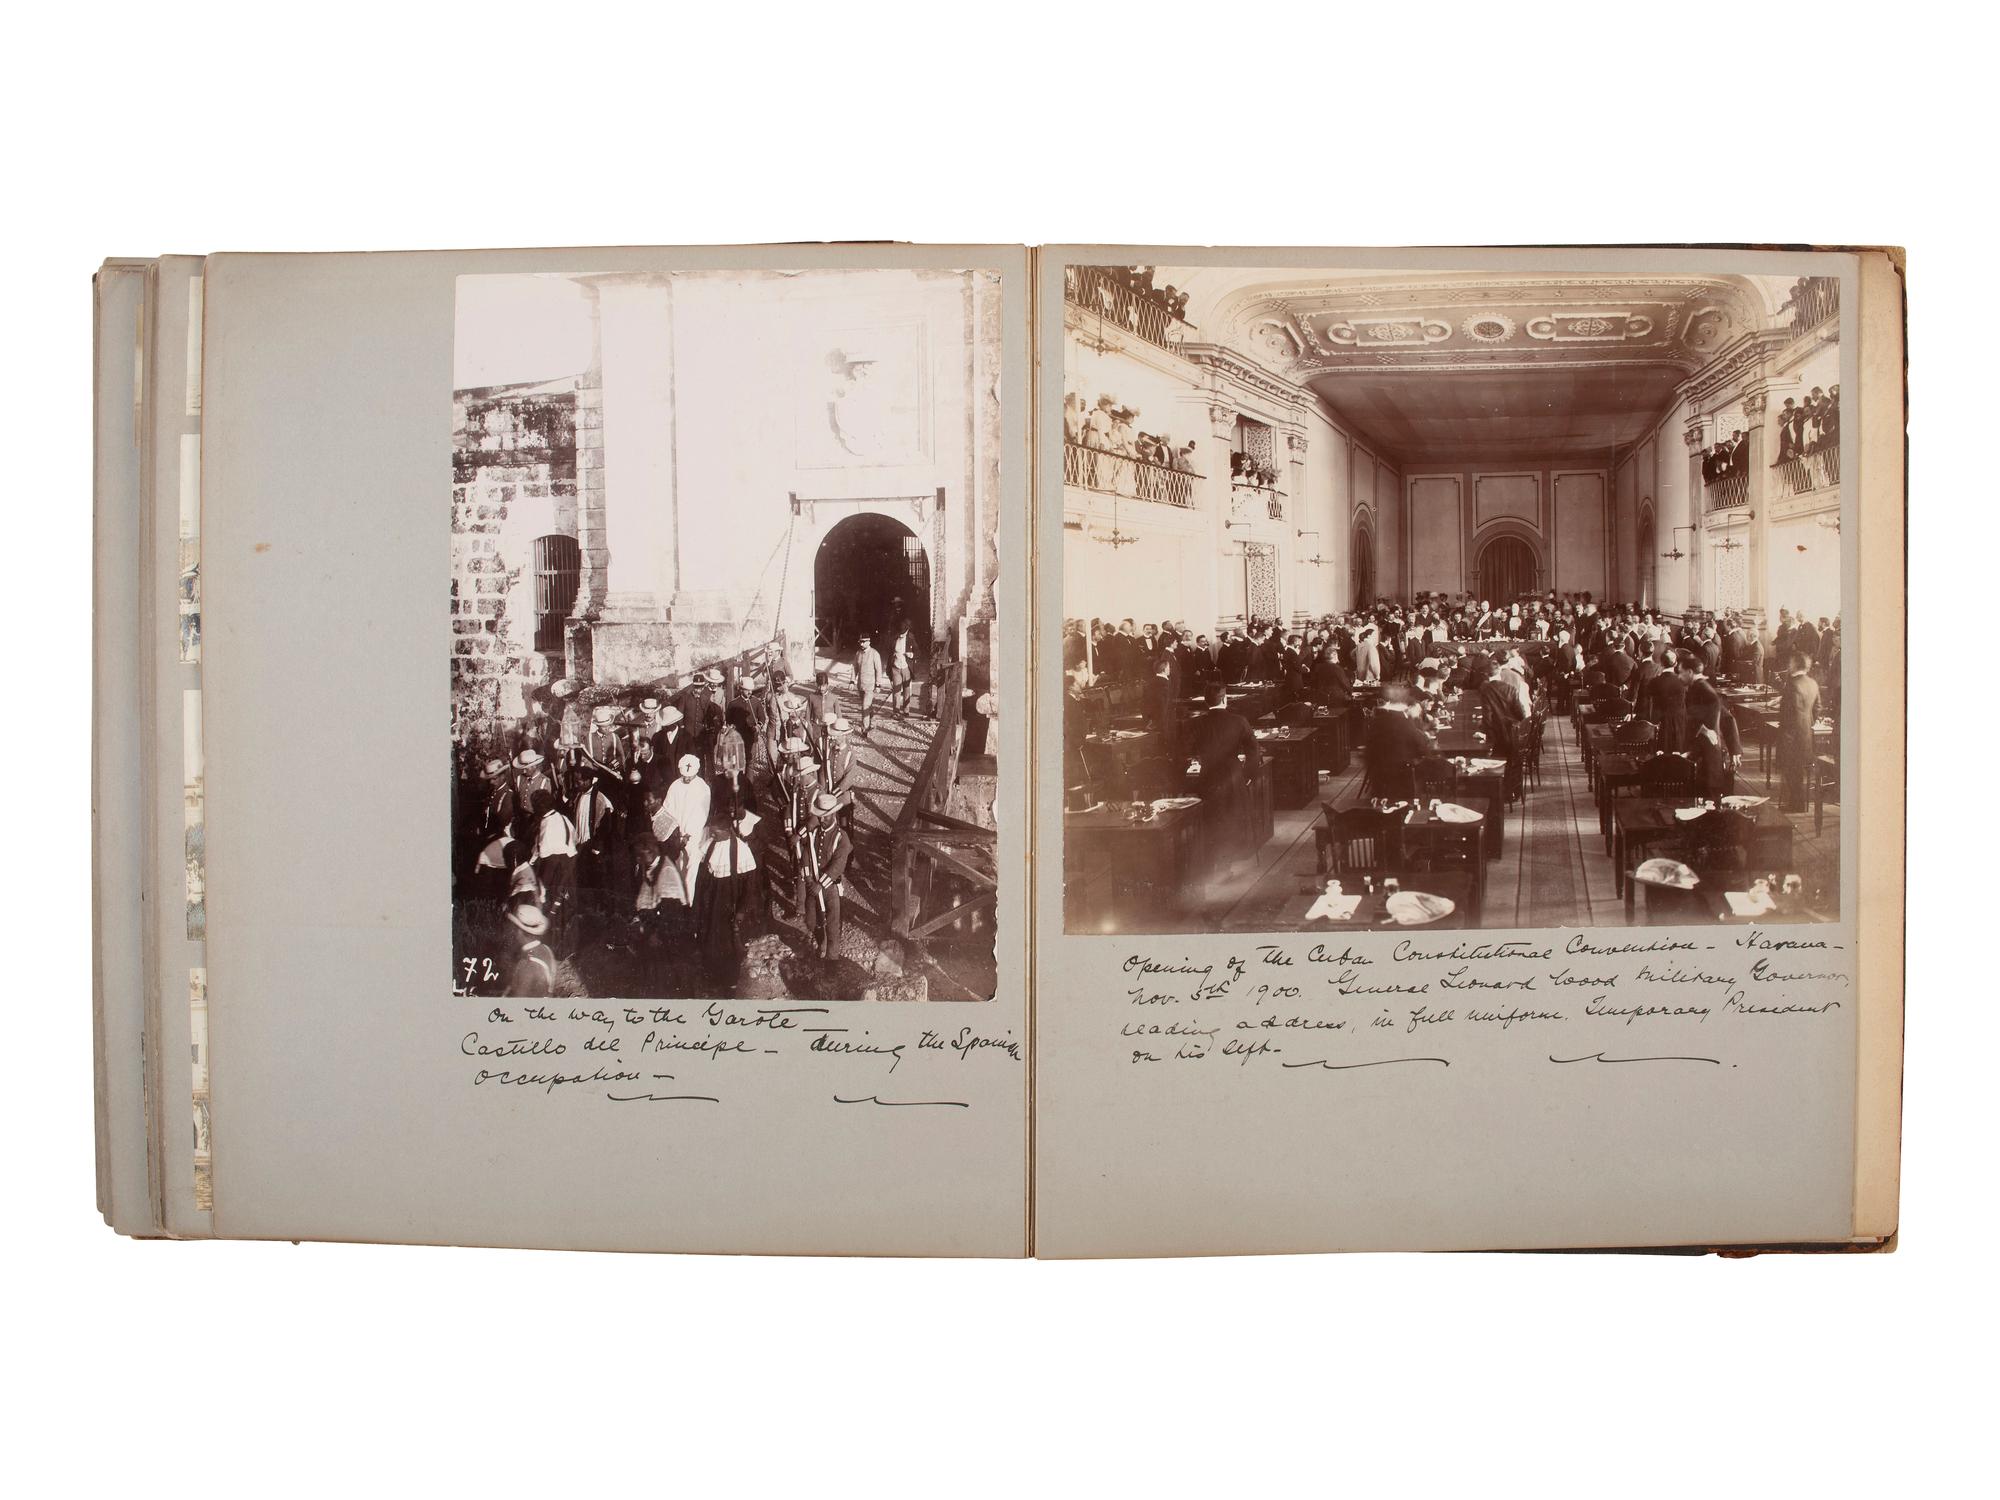 72
On the way to the Garote —
Castillo del Principe — during the Spanish
Occupation —
Opening of the Cuban Constitutional Convention — Havana —
Nov. 5th 1900. General Leonard Wood Military Governor,
reading address, in full uniform. Temporary President
on his left —